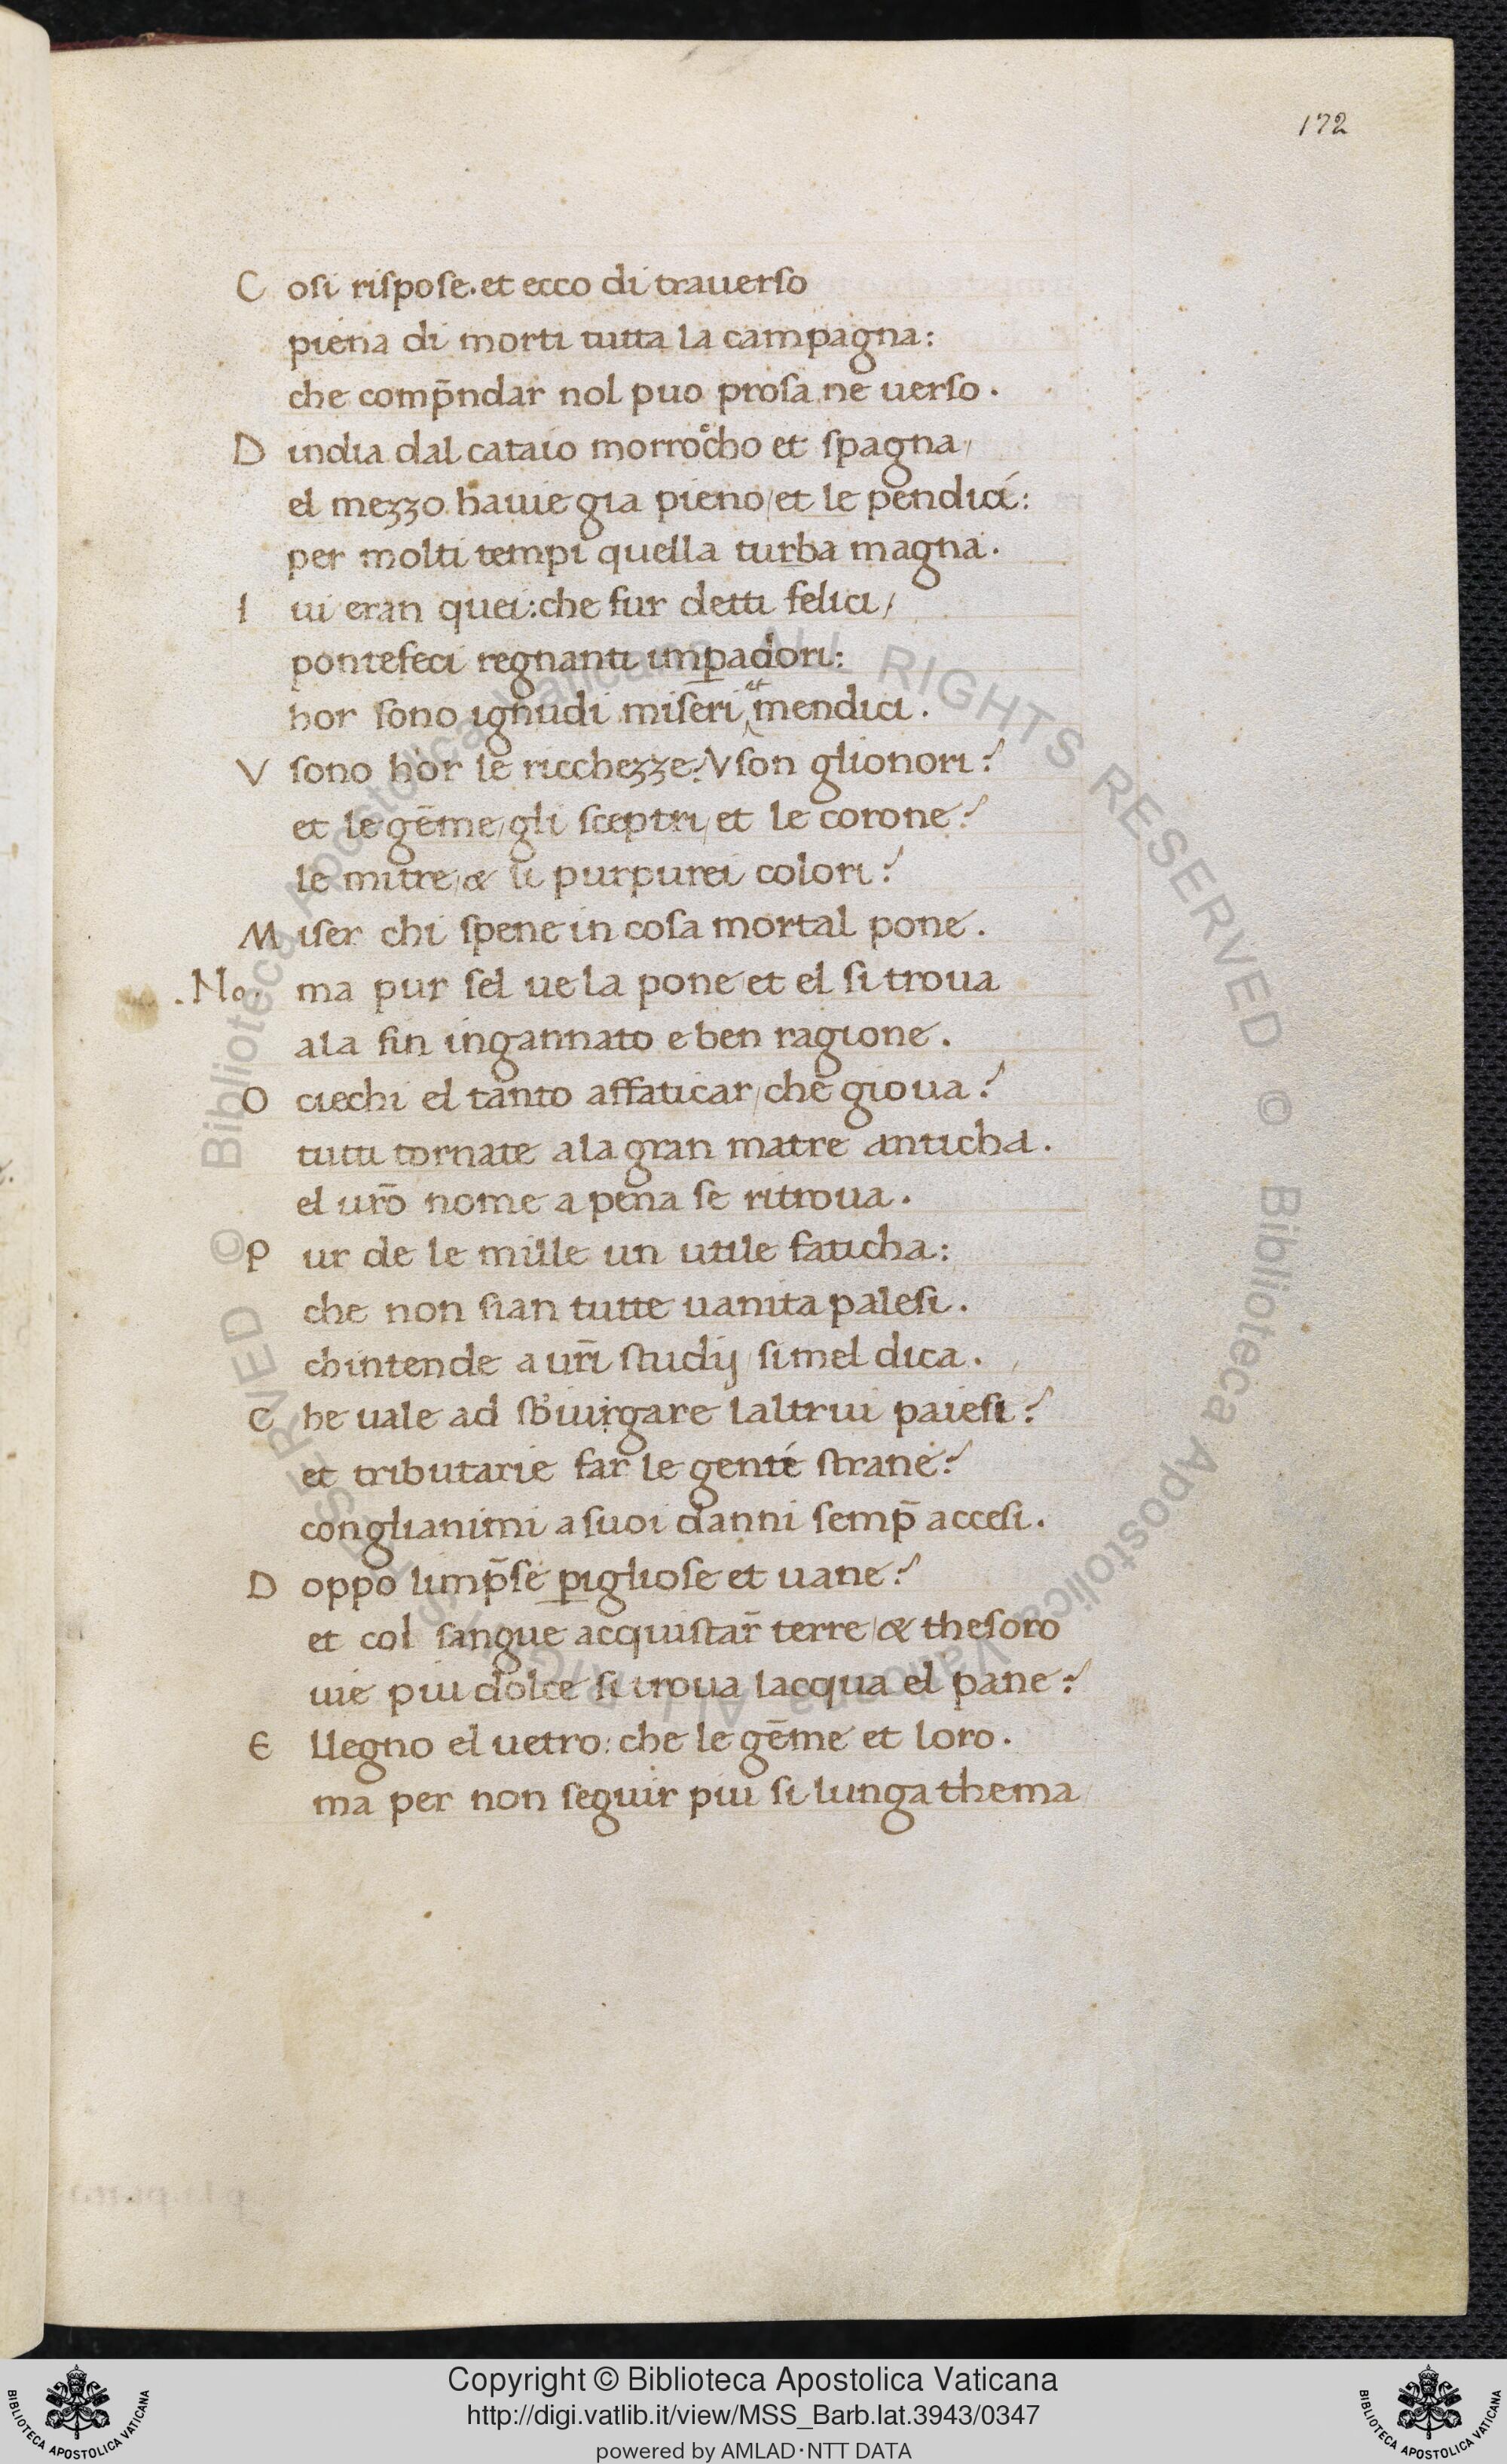 172
C osi rispose. et ecco di trauerso
piena di morti tutta la campagna:
che comp̄ndar nol puo prosa ne uerso.
D india dal cataio morrocho et spagna/
el mezzo hauie gia pieno/et le pendici:
per molti tempi quella turba magna.
I ui eran quei: che fur detti felici/
pontefeci regnanti imꝑadori:
hor sono ignudi miseri et mendici.
V sono hor le ricchezze? V son glionori?
et le gēme/gli sceptri/et le corone?
le mitre/& li purpurei colori?
M iser chi spene in cosa mortal pone.
.No. ma pur sel ue la pone et el si troua
a la fin ingannato e ben ragione.
O ciechi el tanto affaticar/che gioua?
tutti tornate a la gran matre anticha.
el ur̄o nome a pena se ritroua.
P ur de le mille un utile faticha:
che non sian tutte uanita palesi.
chintende a ur̄i studij simel dica.
C he uale ad  laltrui paiesi?
et tributarie far le gente strane?
conglianimi a suoi danni semp̄ accesi.
D oppo limp̄se ꝑigliose et uane?
et col sangue acquistar̄ terre/& thesoro
uie piu dolce si troua lacqua el pane?
E llegno el uetro: che le gēme et loro.
ma per non seguir piu si lunga thema
Copyright © Biblioteca Apostolica Vaticana
http://digi.vatlib.it/view/MSS_Barb.lat.3943/0347
powered by AMLAD·NTT DATA